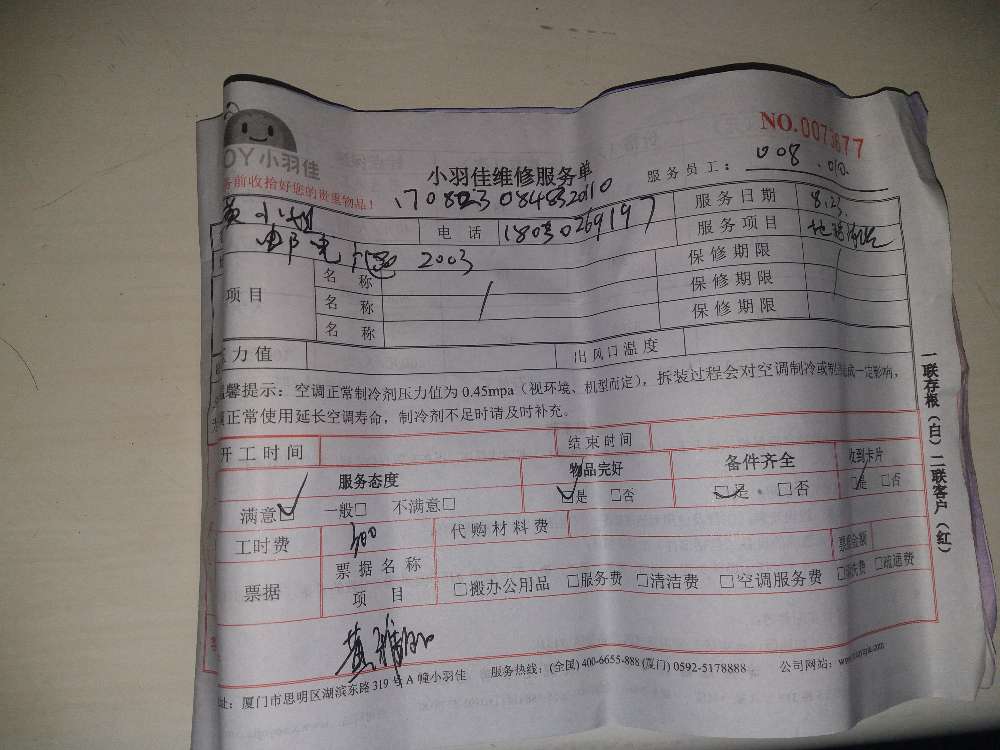 OY 小羽佳
NO.0073677
小羽佳维修服务单
服务员工： 008 . 010
务前收拾好您的贵重物品！
170823084832010
黄小姐 电 话 18030269197 服务日期 8.23
2003 服务项目
项目 名 称 保修期限
名 称 保修期限
名 称 保修期限
力值 出风口温度
温馨提示：空调正常制冷剂压力值为 0.45mpa（视环境、机型而定），拆装过程会对空调制冷或制热造成一定影响，
正常使用延长空调寿命，制冷剂不足时请及时补充。
开工时间 结束时间
服务态度 物品完好 备件齐全 收到卡片
满意□ 一般□ 不满意□ □是 □否 □是 □否 □是 □否
工时费 300 代购材料费
票据 票据名称 票据金额
项 目 □搬办公用品 □服务费 □清洁费 □空调服务费 □清洗费 □疏通费
址：厦门市思明区湖滨东路 319 号 A 幢小羽佳 服务热线：(全国) 400-6655-888 (厦门) 0592-5178888 公司网站：
一联存根（白）二联客户（红）